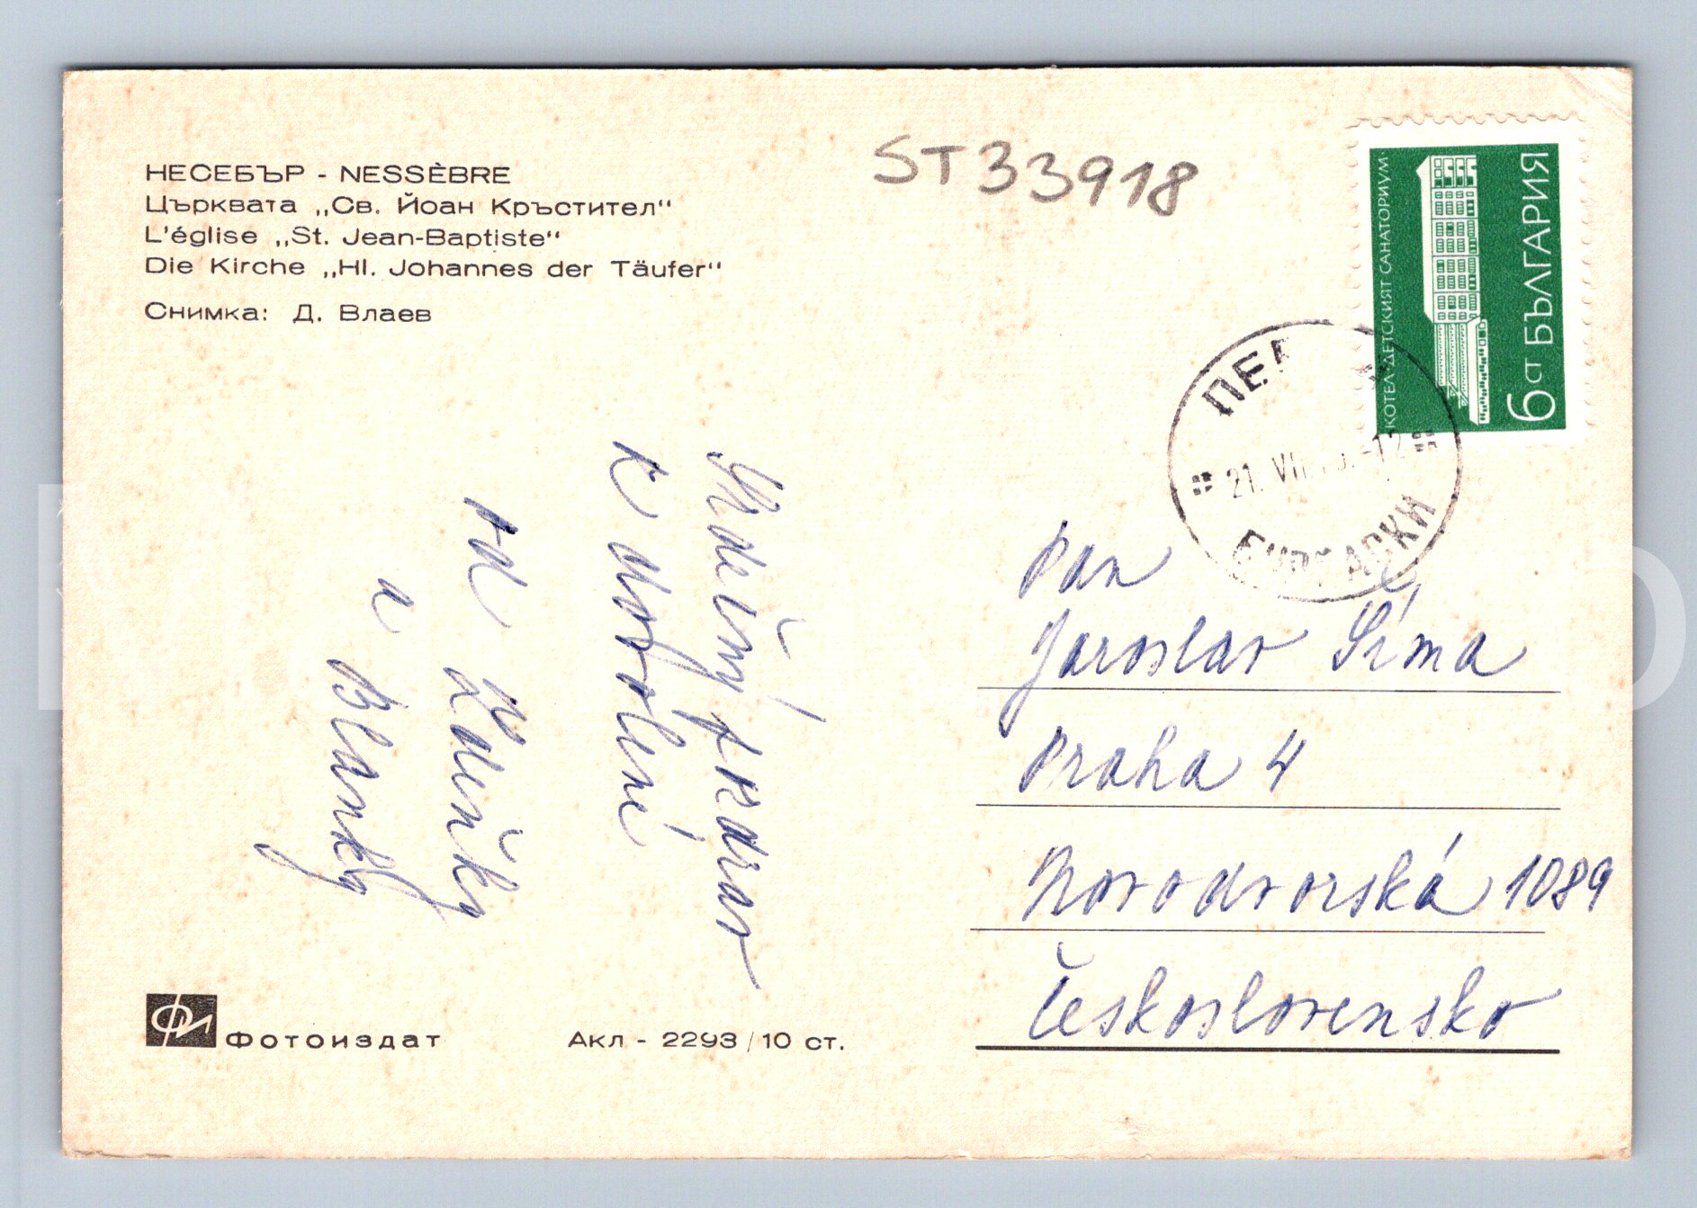 НЕСЕБЪР - NESSÈBRE
Църквата „Св. Йоан Кръстител"
L'église „St. Jean-Baptiste"
Die Kirche „Hl. Johannes der Täufer"
Снимка: Д. Влаев
ST33918
КОТЕЛ-ДЕТСКИЯТ САНАТОРИУМ
6 СТ БЪЛГАРИЯ
21. VII
Srdečný pozdrav
z dovolené
od Zdeňky
a Blanky
Pan
Jaroslav Šíma
Praha 4
Novodvorská 1089
Československo
ФИ Фотоиздат
Акл - 2293/10 ст.